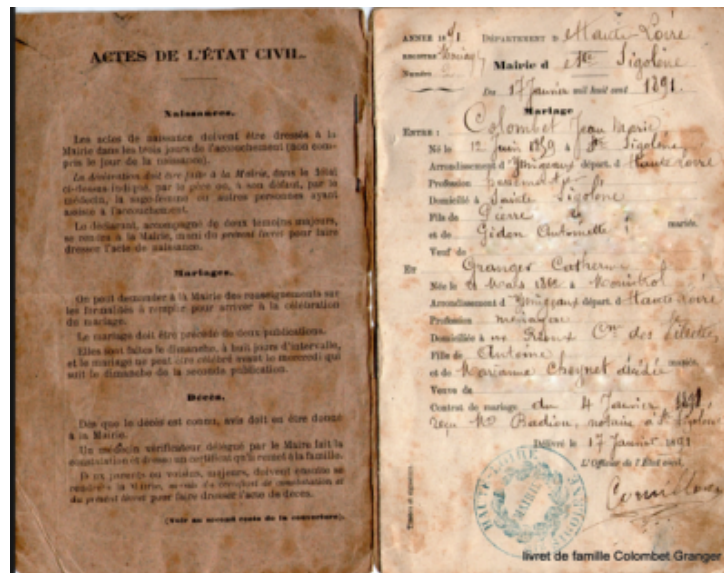 ACTES DE L'ÉTAT CIVIL.
Naissances.
Les actes de naissance doivent être dressés à la
Mairie dans les trois jours de l'accouchement (non com-
pris le jour de la naissance).
La déclaration doit être faite à la Mairie, dans le délai
ci-dessus indiqué, par le père ou, à son défaut, par le
médecin, la sage-femme ou autres personnes ayant
assisté à l'accouchement.
Le déclarant, accompagné de deux témoins majeurs,
se rendra à la Mairie, muni du présent livret pour faire
dresser l'acte de naissance.
Mariages.
On peut demander à la Mairie des renseignements sur
les formalités à remplir pour arriver à la célébration
du mariage.
Le mariage doit être précédé de deux publications.
Elles sont faites le dimanche, à huit jours d'intervalle,
et le mariage ne peut être célébré avant le mercredi qui
suit le dimanche de la seconde publication.
Décès.
Dès que le décès est connu, avis doit en être donné
à la Mairie.
Un médecin vérificateur délégué par le Maire fait la
constatation et dresse un certificat qu'il remet à la famille.
Deux parents ou voisins, majeurs, doivent ensuite se
rendre à la Mairie, munis du certificat de constatation et
du présent livret pour faire dresser l'acte de décès.
(Voir au second recto de la couverture).
ANNÉE 1891. DÉPARTEMENT d Haute-Loire
REGISTRE Mariage
Numéro 2 Mairie d Ste Sigolène
Du 17 Janvier mil huit cent 1891.
Mariage
ENTRE : Colombet Jean Marie
Né le 12 Juin 1859 à Ste Sigolène
Arrondissement d'Yssingeaux départ. d Haute Loire
Profession
Domicilié à Sainte Sigolène
Fils de Pierre
et de Gidon Antoinette mariés.
Veuf de
ET Granger Catherine
Née le Mars à Monistrol
Arrondissement d'Yssingeaux départ. d Haute Loire
Profession ménagère
Domiciliée à Cne des Villettes
Fille de Antoine
et de Marianne Cheynet décédée mariés.
Veuve de
Contrat de mariage du 4 Janvier 1891
reçu Me Badiou, notaire à Ste Sigolène
Délivré le 17 Janvier 1891
L'Officier de l'État civil,
MAIRIE
HAUTE-LOIRE
livret de famille Colombet Granger